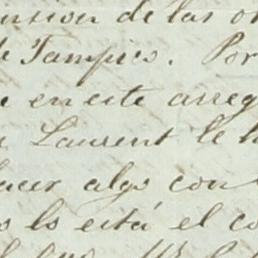 de las
de Tampico. Por
en este arreg
Laurent le h
hacer algo con
ls está el co